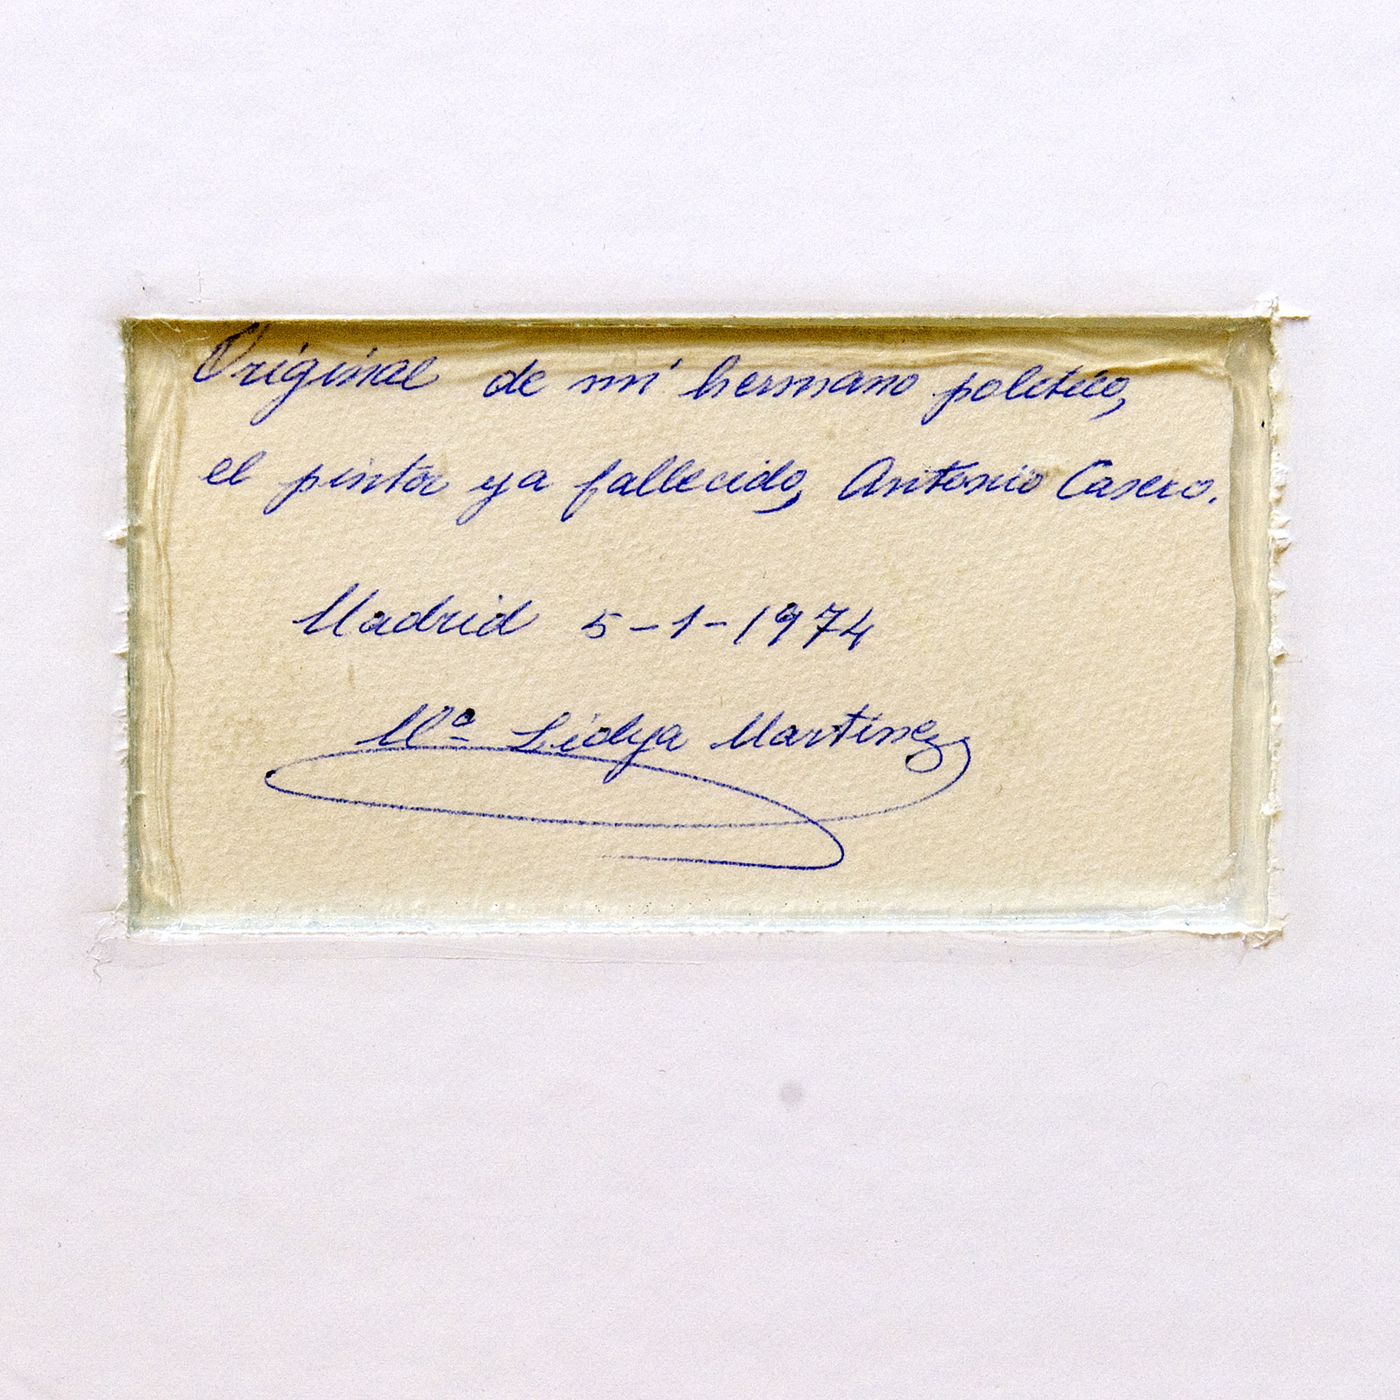 Original de mi hermano politico,
el pintor ya fallecido, Antonio Casero.
Madrid 5-1-1974
Mª Lidya Martinez